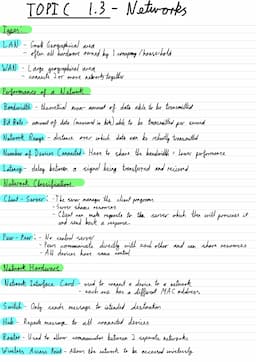 TOPIC 1.3 - Networks
Types
LAN - Small Geographical area
- Often all hardware owned by 1 company / household
WAN - Large geographical area
- connects 2 or more networks together
Performance of a Network
Bandwidth - theoretical max amount of data able to be transmitted
Bit Rate - amount of data (measured in bits) able to be transmitted per second
Network Range - distance over which data can be reliably transmitted
Number of Devices Connected - Have to share the bandwidth - lower performance
Latency - delay between a signal being transferred and received
Network Classification
Client-Server - The server manages the client programs
- Server shares resources
- Client can make requests to the server which then will process it
and send back a response
Peer-Peer - No central server
- Peers communicate directly with each other and can share resources
- All devices have same control
Network Hardware
Network Interface Card - used to connect a device to a network
- each one has a different MAC address
Switch - Only sends message to intended destination
Hub - Repeats message to all connected devices
Router - Used to allow communication between 2 separate networks
Wireless Access Point - Allows the network to be accessed wirelessly